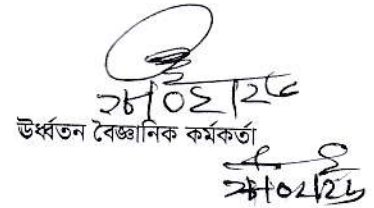 ২৮/০২/২৬
ঊর্ধ্বতন বৈজ্ঞানিক কর্মকর্তা
২৮/০২/২৬